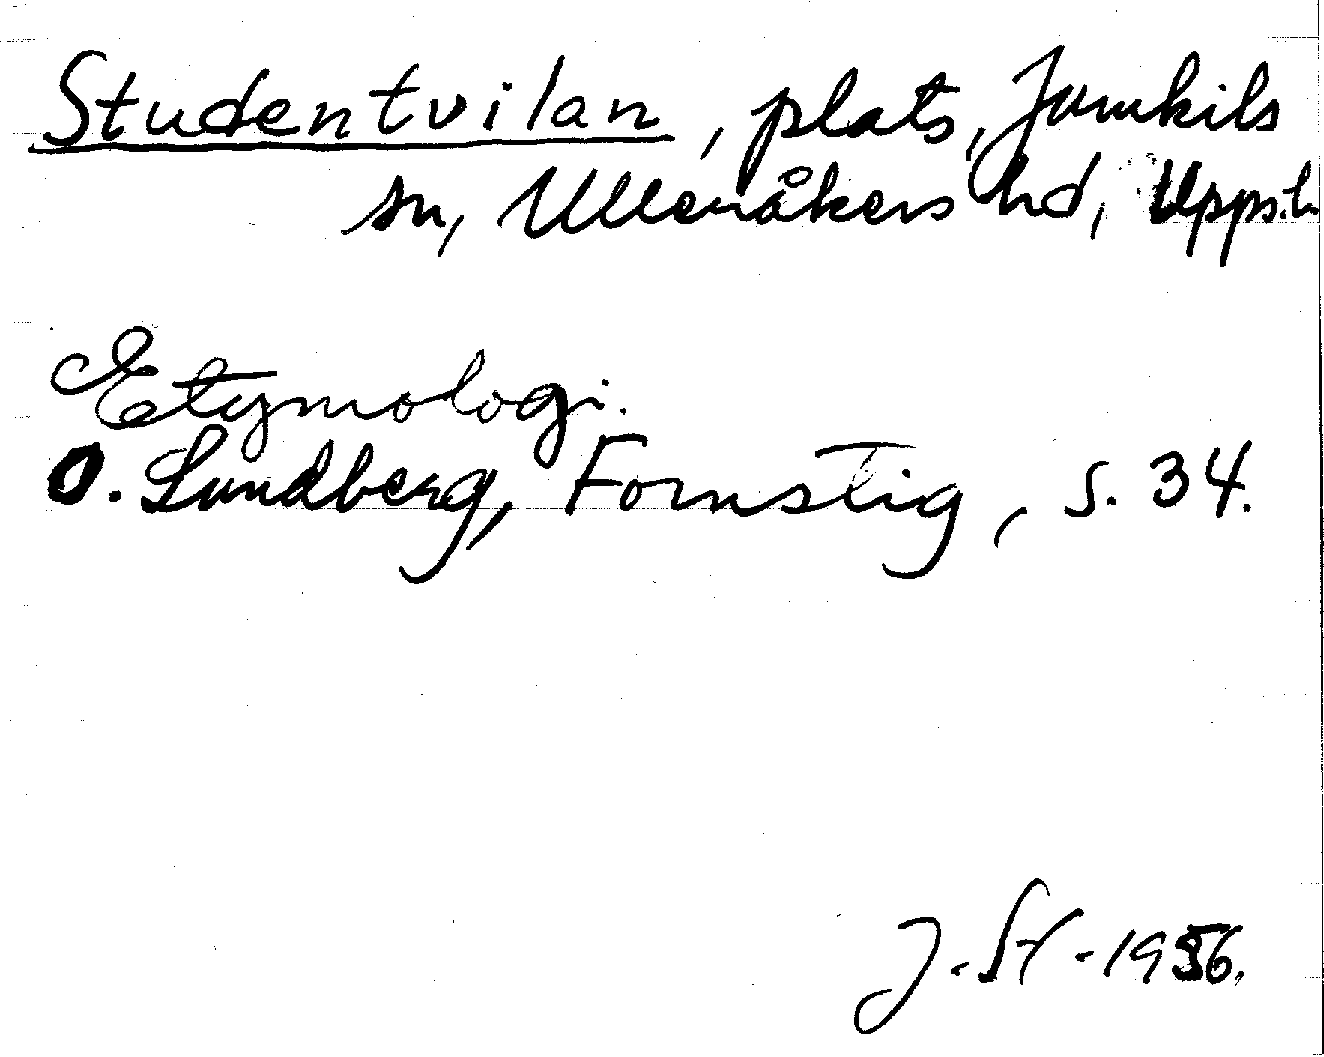 Studentvilan, plats, Jumkils
sn, Ulleråkers hd, Upps.l.
Etymologi.
O. Lundberg, Fornstig, s. 34.
J. St - 1956.